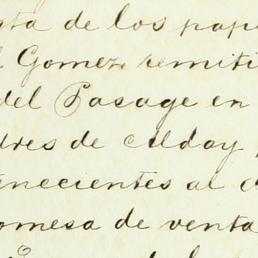 sta de los pape
l Gomez remiti
del Pasage en
dres de Alday
tenecientes al c
omesa de venta